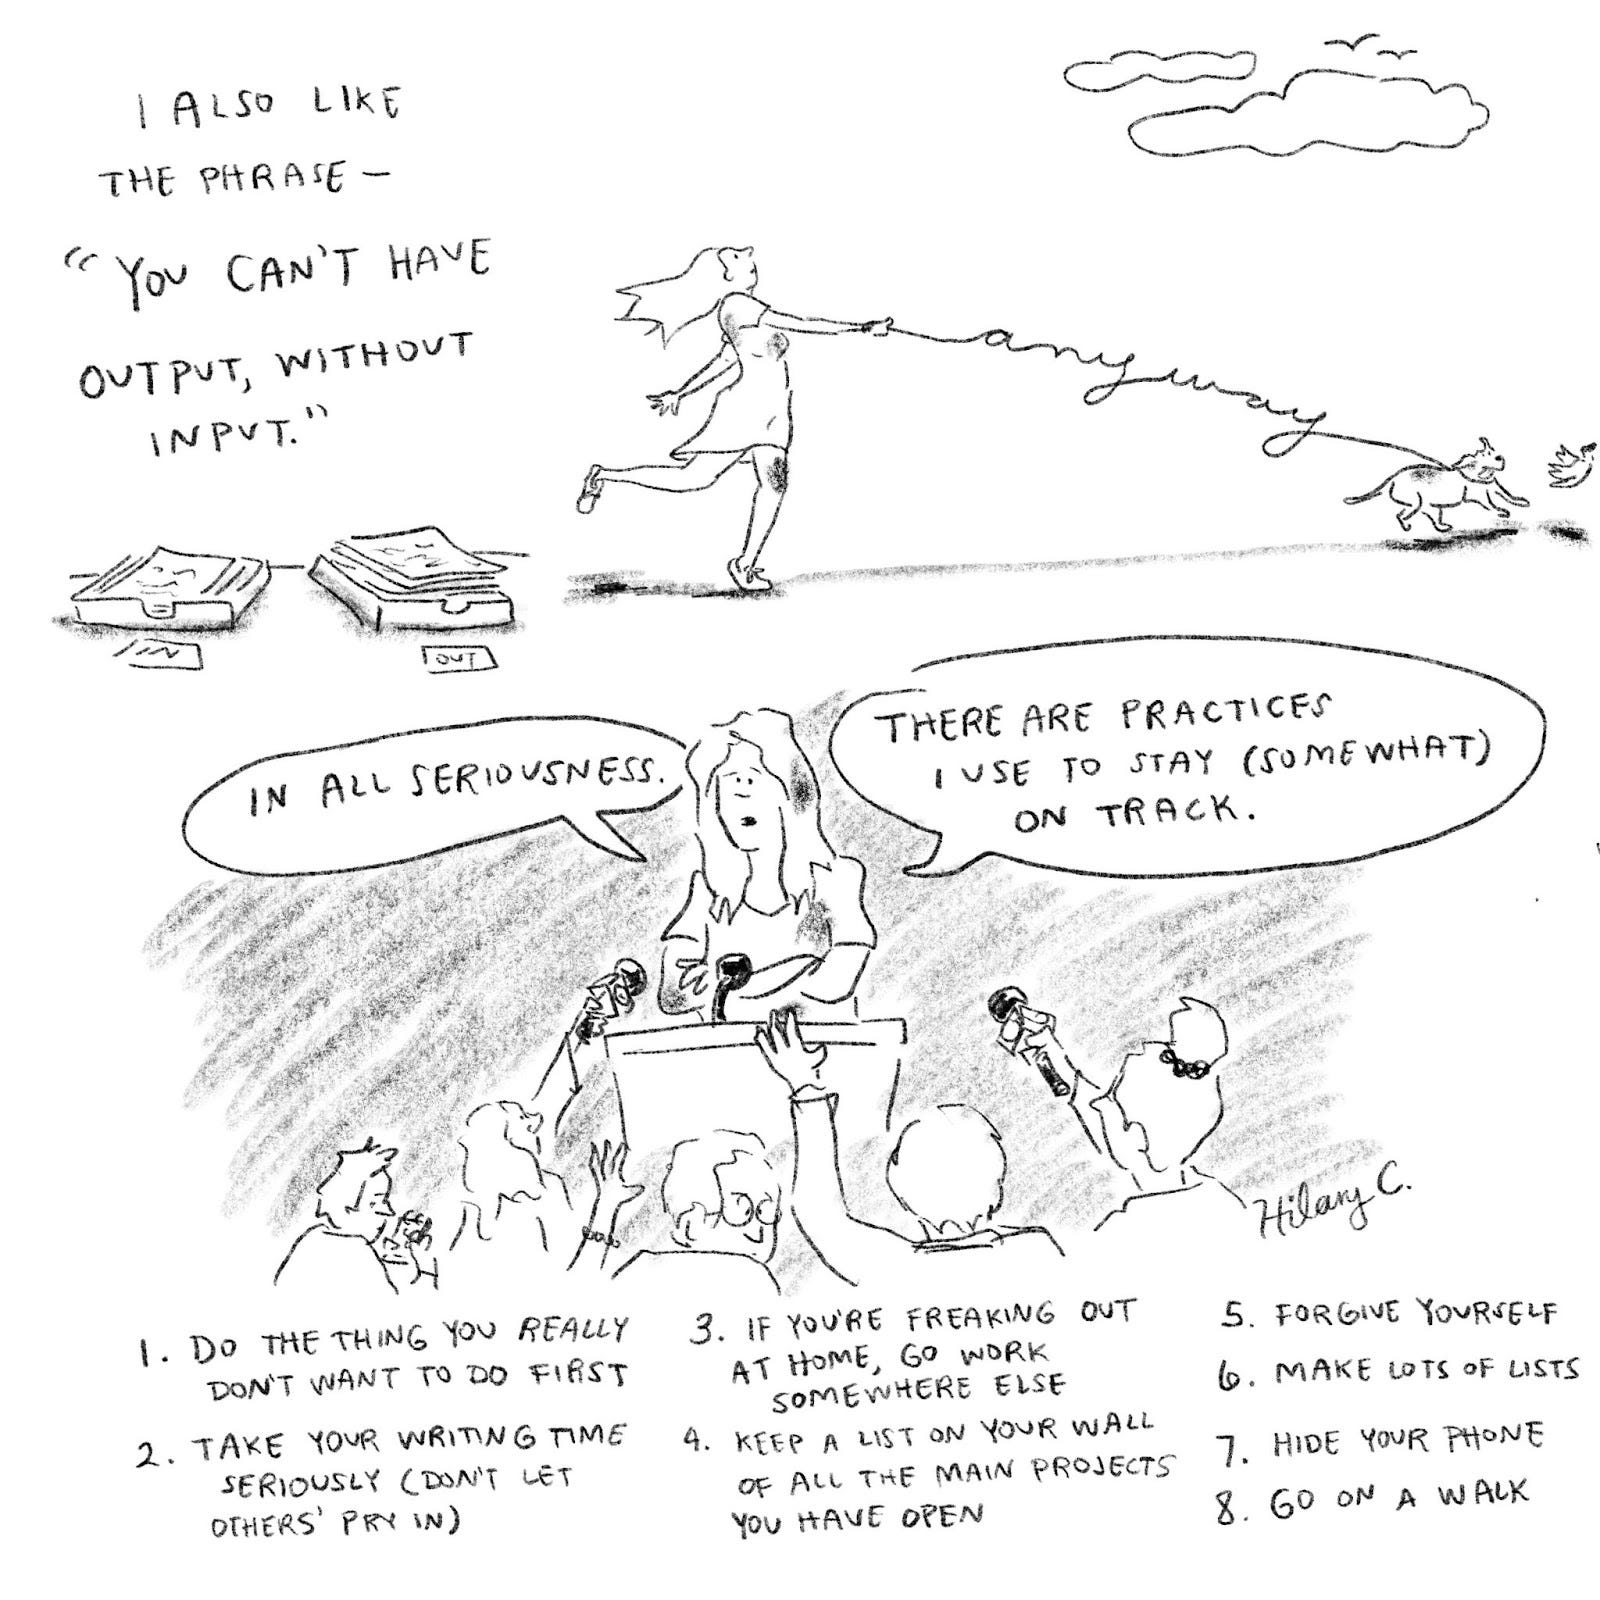 I ALSO LIKE
THE PHRASE —
"YOU CAN'T HAVE
OUTPUT, WITHOUT
INPUT."
IN
OUT
anyway
IN ALL SERIOUSNESS.
THERE ARE PRACTICES
I USE TO STAY (SOMEWHAT)
ON TRACK.
Hilary C.
1. DO THE THING YOU REALLY
DON'T WANT TO DO FIRST
2. TAKE YOUR WRITING TIME
SERIOUSLY (DON'T LET
OTHERS' PRY IN)
3. IF YOU'RE FREAKING OUT
AT HOME, GO WORK
SOMEWHERE ELSE
4. KEEP A LIST ON YOUR WALL
OF ALL THE MAIN PROJECTS
YOU HAVE OPEN
5. FORGIVE YOURSELF
6. MAKE LOTS OF LISTS
7. HIDE YOUR PHONE
8. GO ON A WALK